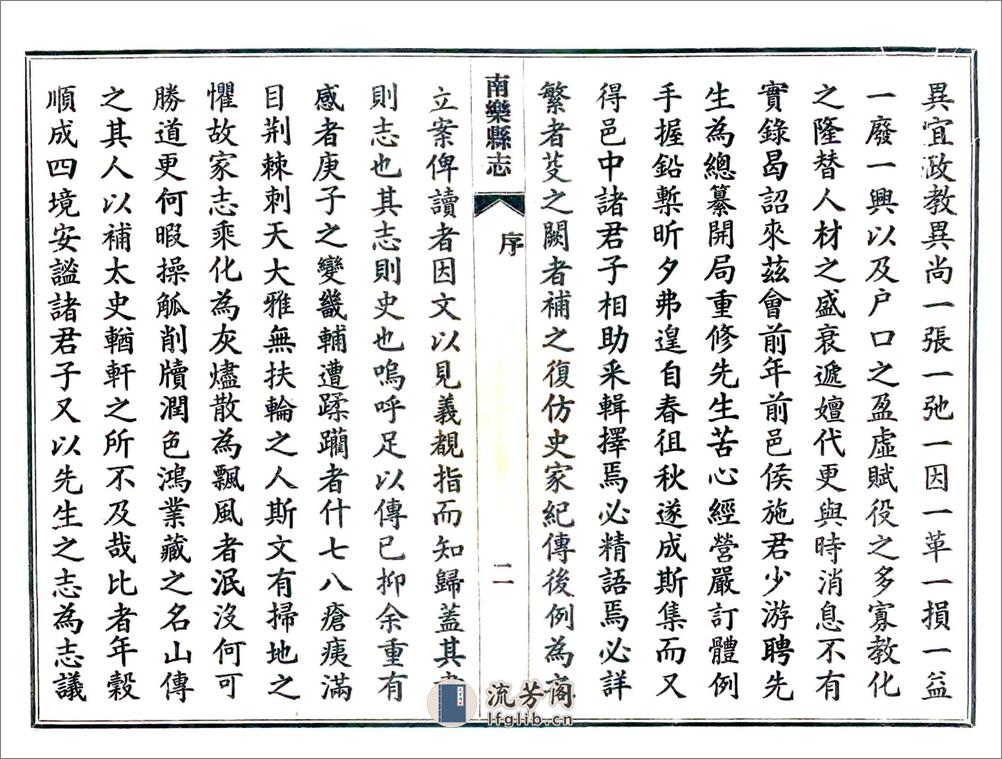 異宜政教異尚一張一弛一因一革一損一益
一廢一興以及戸口之盈虛賦役之多寡教化
之隆替人材之盛衰遞嬗代更與時消息不有
實錄曷詔來茲會前年前邑侯施君少游聘先
生為總纂開局重修先生苦心經營嚴訂體例
手握鉛槧昕夕弗遑自春徂秋遂成斯集而又
得邑中諸君子相助采輯擇焉必精語焉必詳
繁者芟之闕者補之復仿史家紀傳後例為
南樂縣志
序
二
立案俾讀者因文以見義覩指而知歸蓋其
則志也其志則史也嗚呼足以傳已抑余重有
感者庚子之變畿輔遭蹂躪者什七八瘡痍滿
目荆棘刺天大雅無扶輪之人斯文有掃地之
懼故家志乘化為灰燼散為飄風者泯沒何可
勝道更何暇操觚削牘潤色鴻業藏之名山傳
之其人以補太史輶軒之所不及哉比者年穀
順成四境安謐諸君子又以先生之志為志議
流芳阁
lfglib.cn